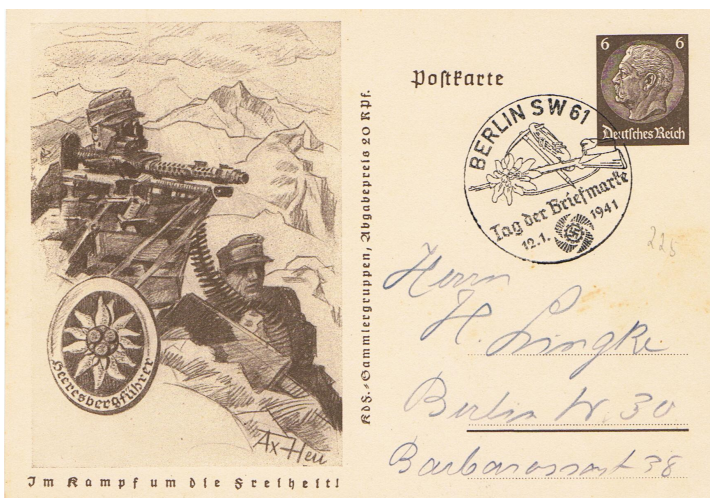 Heeresbergführer
Ax-Heu
Im Kampf um die Freiheit!
KdF.-Sammlergruppen, Abgabepreis 20 Rpf.
Postkarte
6 6
Deutsches Reich
BERLIN SW 61
Tag der Briefmarke
12.1. 1941
225
Herrn
H. Lingke
Berlin W. 30
Barbarossast 38